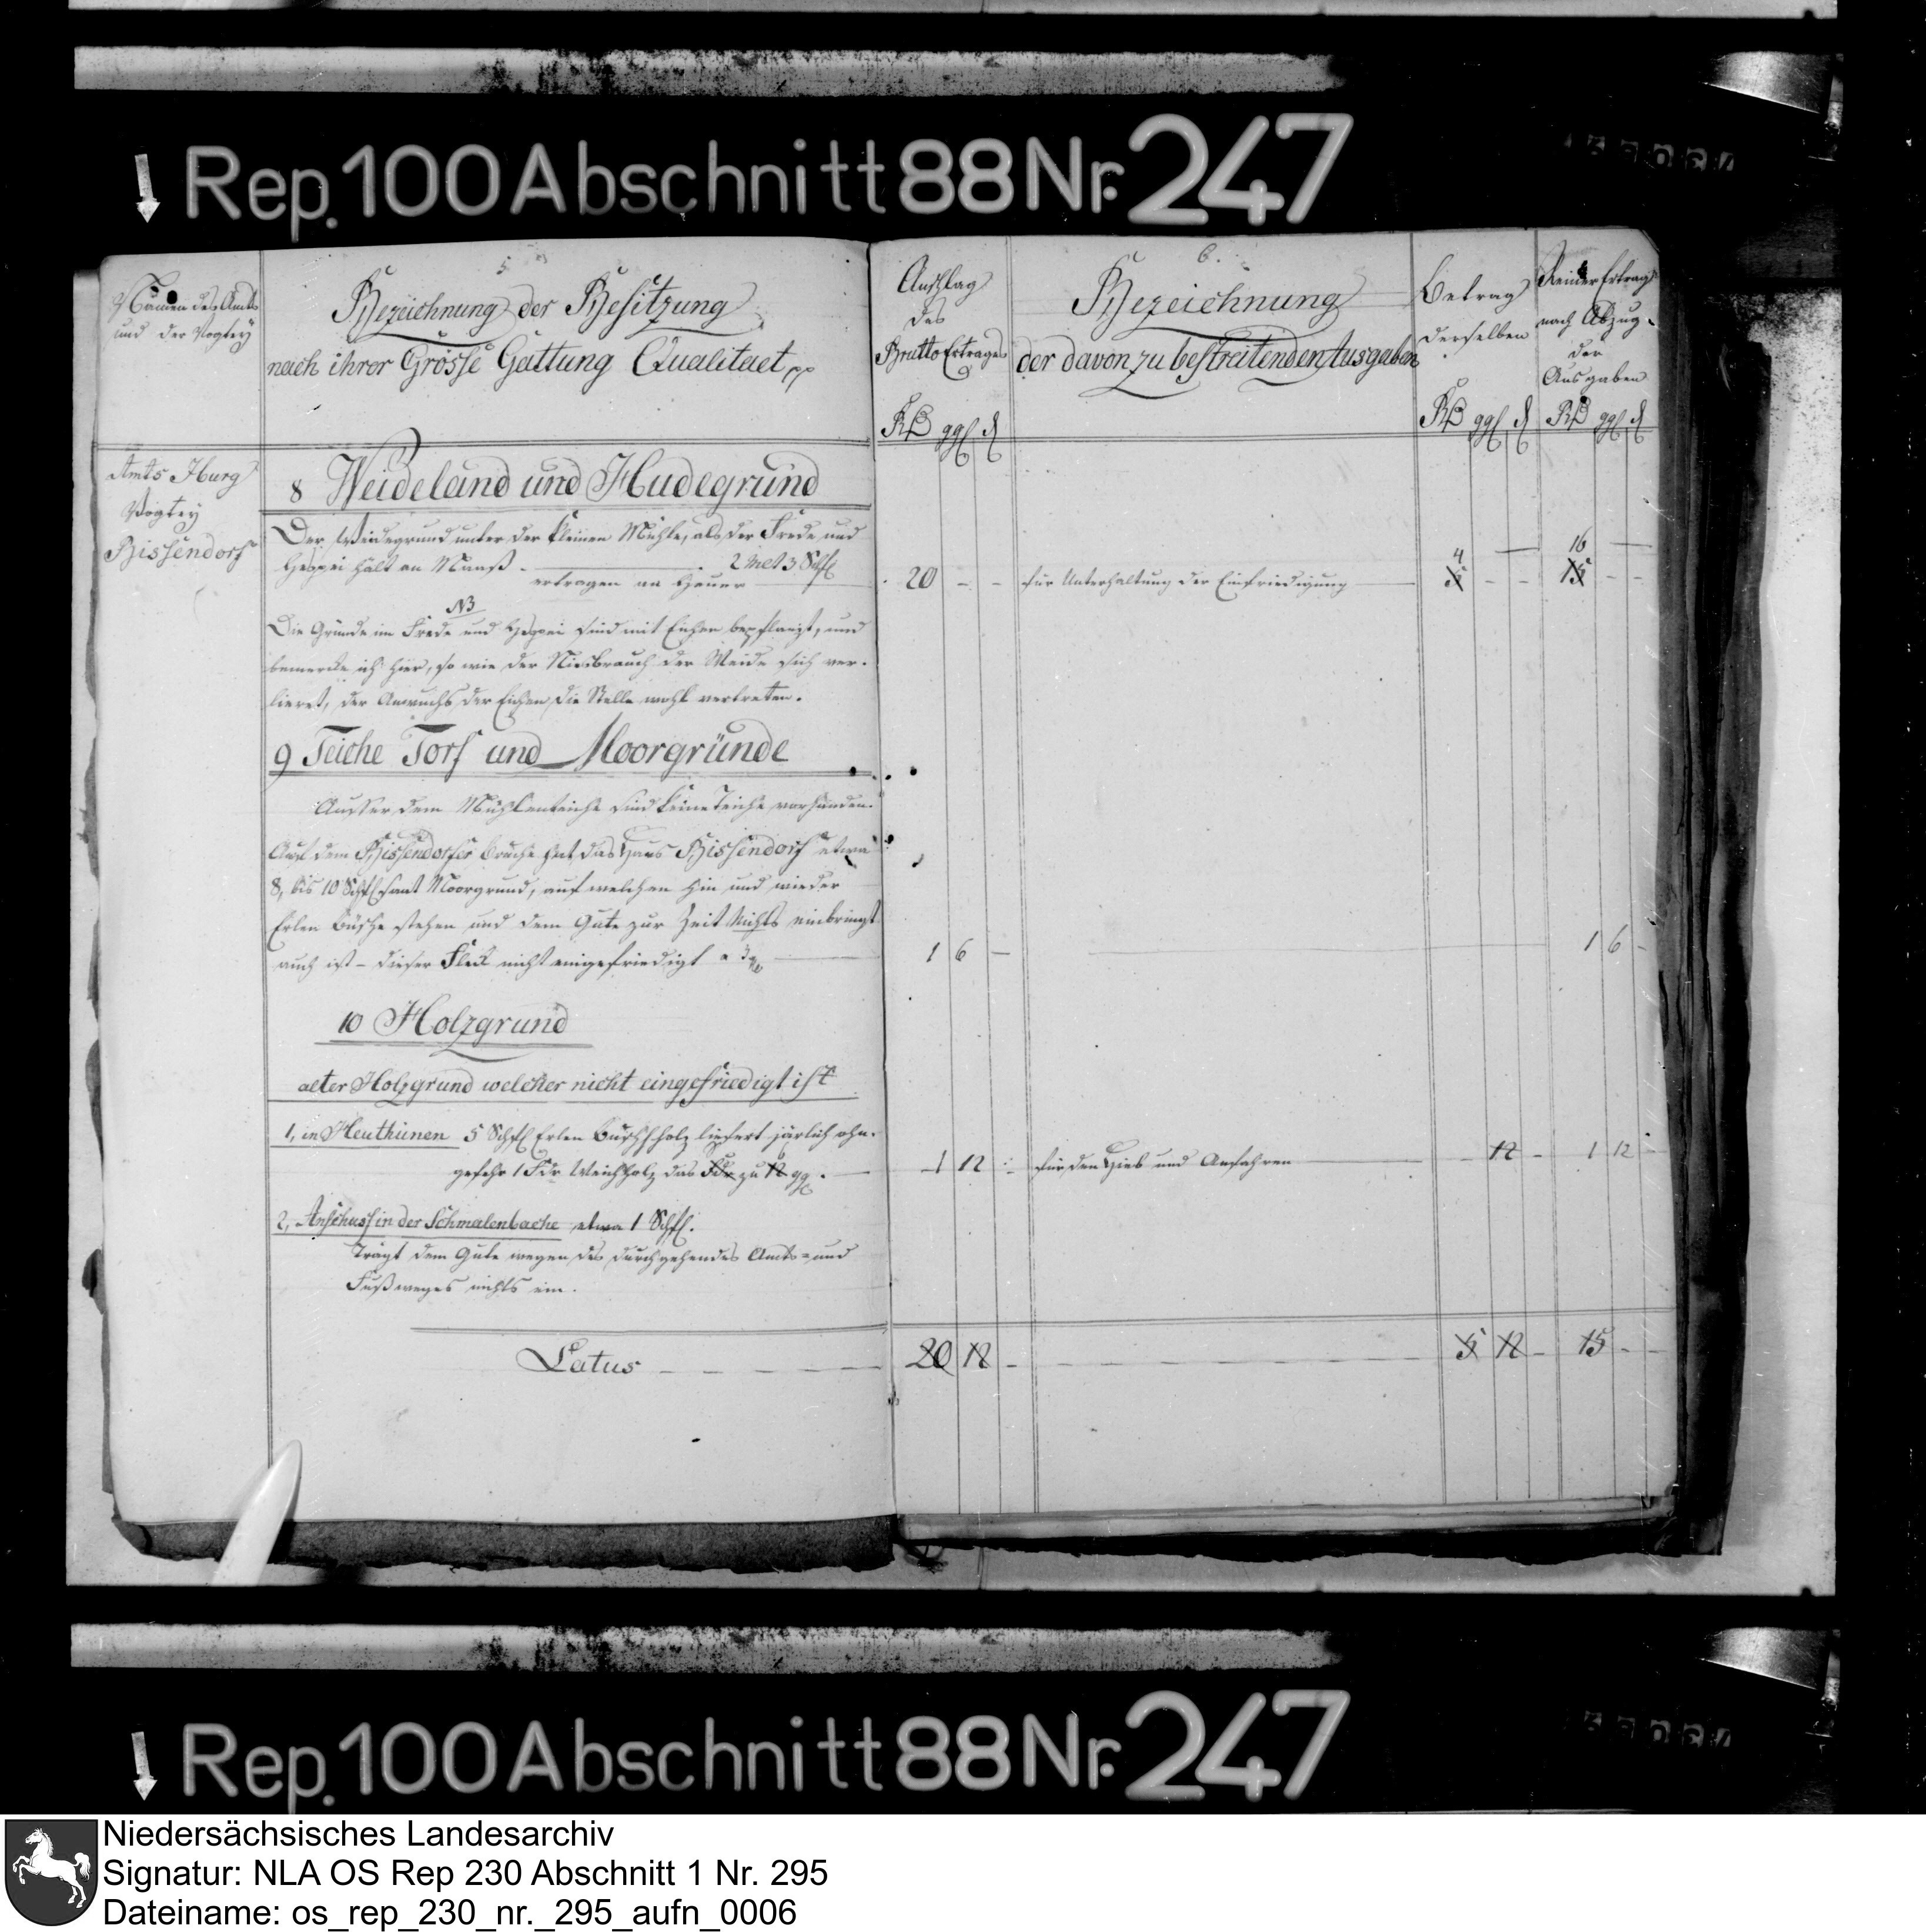 Rep. 100 Abschnitt 88 Nr. 247
Namen des Amts
und der Vogtey
5
Bezeichnung der Besitzung
nach ihrer Grösse Gattung Qualitaet pp
Anschlag
des
Brutto Ertrages
6.
Bezeichnung
der davon zu bestreitenden Ausgaben
Betrag
derselben
Reiner Ertrag
nach Abzug
der
Ausgaben
Amts Iburg
Vogtey
Bissendorf
8 Weideland und Hudegrund
Der Weidegrund unter der kleinen Mühle, als der Frede und
hält an Maaß 2 Molt 3 Schfl
ertragen an Heuer 20 - - für Unterhaltung der Einfriedigung 4 5 - - 16 15 - -
NB
Die Gründe im Frede und sind mit Eichen bepflanzt, und
bemerke ich hier, so wie der Niesbrauch der Weide sich ver-
lieret, der Anwuchs der Eichen die Stelle wohl vertreten.
9 Teiche Torf und Moorgründe
Ausser dem Mühlenteiche sind keine Teiche vorhanden.
Auf dem Bissendorfer Bruche hat das Haus Bissendorf etwa
8, bis 10 Schflsaat Moorgrund, auf welchen hin und wieder
Erlen Büsche stehen und dem Gute zur Zeit Nichts einbringt
auch ist - dieser Fleck nicht eingefriedigt 1 6 - 1 6 -
10 Holzgrund
alter Holzgrund welcher nicht eingefriedigt ist
1, in Heuthünen 5 Schfl Erlen Buschholz liefert järlich ohn-
gefehr 1 Fdr Weichholz das Fdr zu 12 gg. 1 12 - für den Hieb und Anfahren - 12 - 1 12 -
2, Anschuss in der Schmalenbache etwa 1 Schfl.
Trägt dem Gute wegen des durchgehendes Amts- und
Fußweges nichts ein.
Latus 20 12 - 5 12 - 15 - -
Rep. 100 Abschnitt 88 Nr. 247
Niedersächsisches Landesarchiv
Signatur: NLA OS Rep 230 Abschnitt 1 Nr. 295
Dateiname: os_rep_230_nr._295_aufn_0006